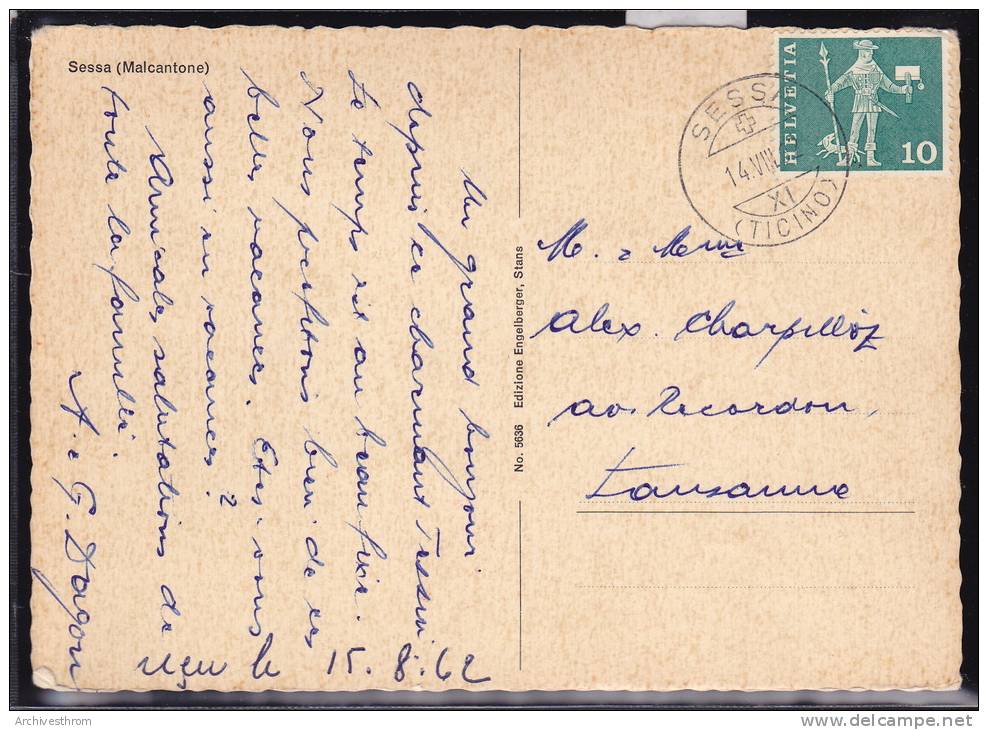 Sessa (Malcantone)
Un grand bonjour
depuis ce charmant Tessin.
Le temps est au beau fixe.
Nous profitons bien de ces
belles vacances. Etes-vous
aussi en vacances?
Amicales salutations de
toute la famille.
A. e G. Dagon
reçu le 15.8.62
No. 5636 Edizione Engelberger, Stans
HELVETIA
10
SESSA
14.VIII.
XI
(TICINO)
M. e Mme
Alex. Charpilloz
av. Recordon,
Lausanne
Archivesthrom
www.delcampe.net